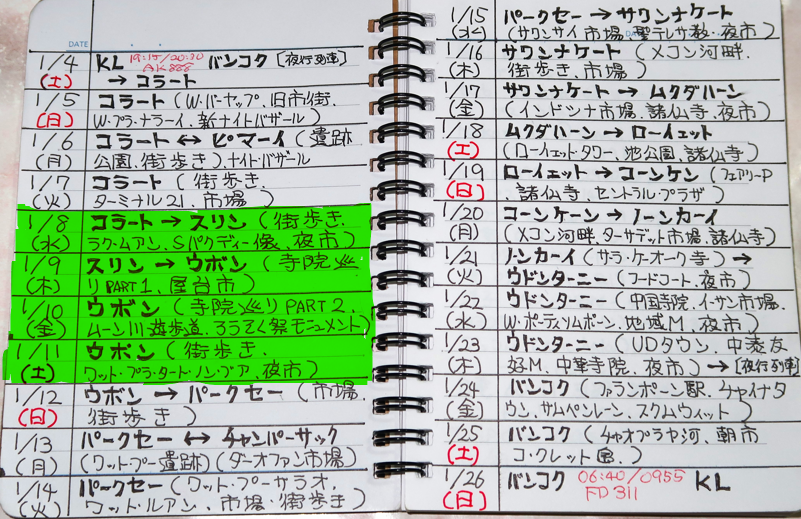 DATE
1/4 KL 19:15/00:20 バンコク [夜行列車]
(土) AK888 → コラート
1/5 コラート (W.パーヤップ、旧市街、
(日) W.プラ・ナラーイ、新ナイトバザール)
1/6 コラート ↔ ピマーイ (遺跡
(月) 公園、街歩き) ナイトバザール
1/7 コラート (街歩き、
(火) ターミナル21、市場)
1/8 コラート → スリン (街歩き、
(水) ラク・ムアン、Sパクディー像、夜市)
1/9 スリン → ウボン (寺院巡
(木) りPART1、屋台市)
1/10 ウボン (寺院巡りPART2、
(金) ムーン川遊歩道、ろうそく祭モニュメント)
1/11 ウボン (街歩き、
(土) ワット・プラ・タード・ノン・ブア、夜市)
1/12 ウボン → パークセー (市場、
(日) 街歩き)
1/13 パークセー ↔ チャンパーサック
(月) (ワット・プー遺跡) (ダーオファン市場)
1/14 パークセー (ワット・プーサラオ、
(火) ワット・ルアン、市場・街歩き)
1/15 パークセー → サワンナケート
(水) (サワンサイ市場、聖テレサ教、夜市)
1/16 サワンナケート (メコン河畔、
(木) 街歩き、市場)
1/17 サワンナケート → ムクダハーン
(金) (インドシナ市場、諸仏寺、夜市)
1/18 ムクダハーン → ローイェット
(土) (ローイェット・タワー、池公園、諸仏寺)
1/19 ローイェット → コーンケン (フェアリーP
(日) 、諸仏寺、セントラル・プラザ)
1/20 コーンケーン → ノーンカーイ
(月) (メコン河畔、ターサデット市場、諸仏寺)
1/21 ノンカーイ (サラ・ケオーク寺) →
(火) ウドンターニー (フードコート、夜市)
1/22 ウドンターニー (中国寺院、イーサン市場、
(水) W.ポーティソムポーン、地域M、夜市)
1/23 ウドンターニー (UDタウン、中泰友
(木) 好M、中華寺院、夜市) → [夜行列車]
1/24 バンコク (ファランポーン駅、チャイナタ
(金) ウン、サムペンレーン、スクムウィット)
1/25 バンコク (チャオプラヤ河、朝市
(土) コ・クレット島、)
1/26 バンコク 06:40/0955 KL
(日) FD311